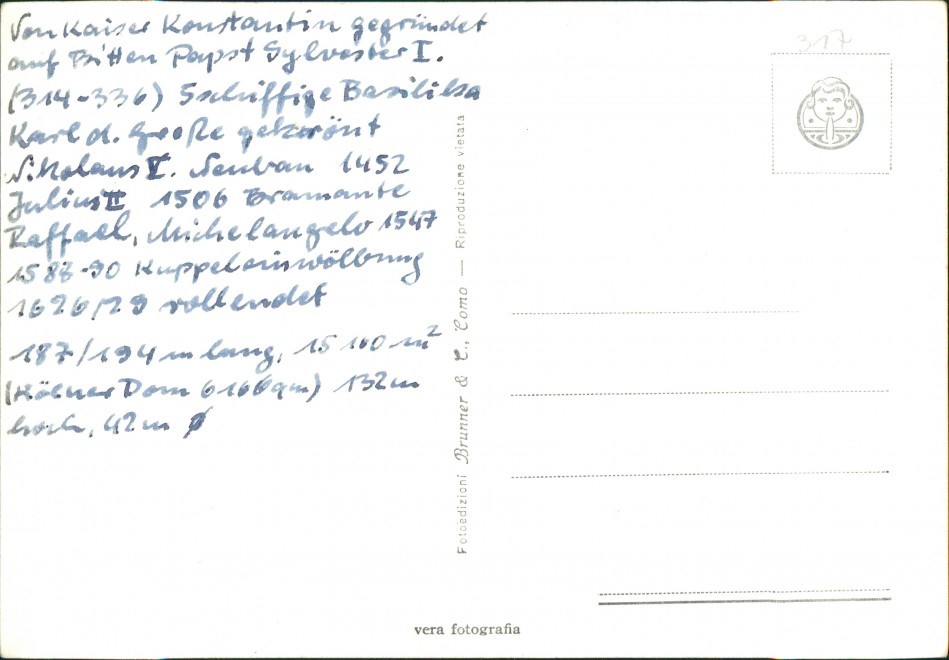 Von Kaiser Konstantin gegründet
auf Bitten Papst Sylvester I.
(314-336) 5schiffige Basilika
Karl d. Große gekrönt
Nikolaus V. Neubau 1452
Julius II 1506 Bramante
Raffael, Michelangelo 1547
1588-90 Kuppeleinwölbung
1626/29 vollendet
187/194 m lang, 15 160 m²
(Kölner Dom 6166qm) 132m
hoch, 42m ø
Fotoedizioni Brunner & C., Como — Riproduzione vietata
317
vera fotografia